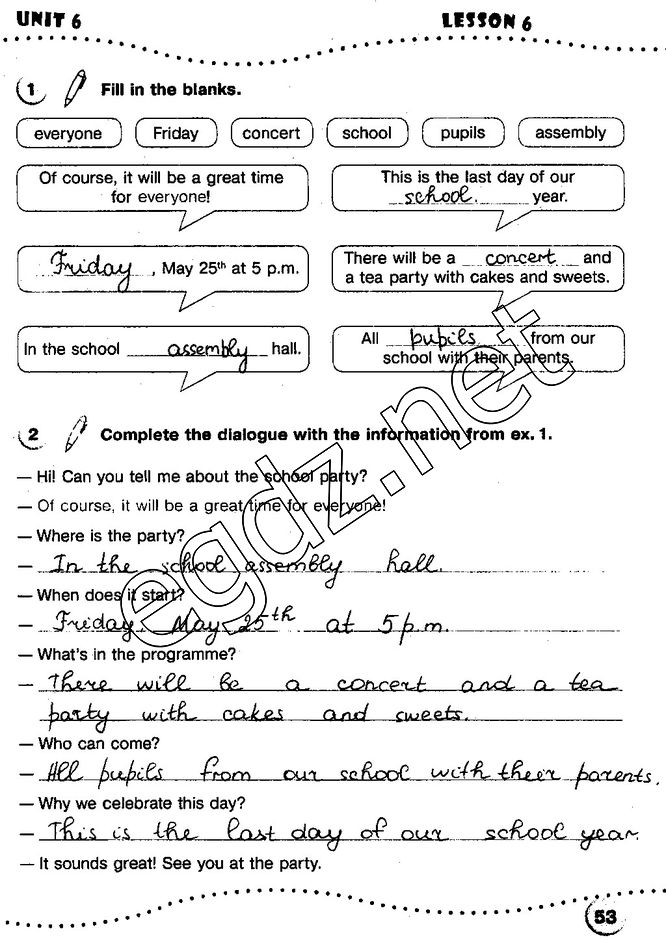 UNIT 6 LESSON 6
1 Fill in the blanks.
everyone Friday concert school pupils assembly
Of course, it will be a great time
for everyone!
This is the last day of our
school. year.
Friday, May 25th at 5 p.m.
There will be a concert and
a tea party with cakes and sweets.
In the school assembly hall.
All pupils from our
school with their parents.
2 Complete the dialogue with the information from ex. 1.
— Hi! Can you tell me about the school party?
— Of course, it will be a great time for everyone!
— Where is the party?
— In the school assembly hall.
— When does it start?
— Friday, May 25th at 5 p.m.
— What's in the programme?
— There will be a concert and a tea
party with cakes and sweets.
— Who can come?
— All pupils from our school with their parents.
— Why we celebrate this day?
— This is the last day of our school year.
— It sounds great! See you at the party.
egdz.net
53